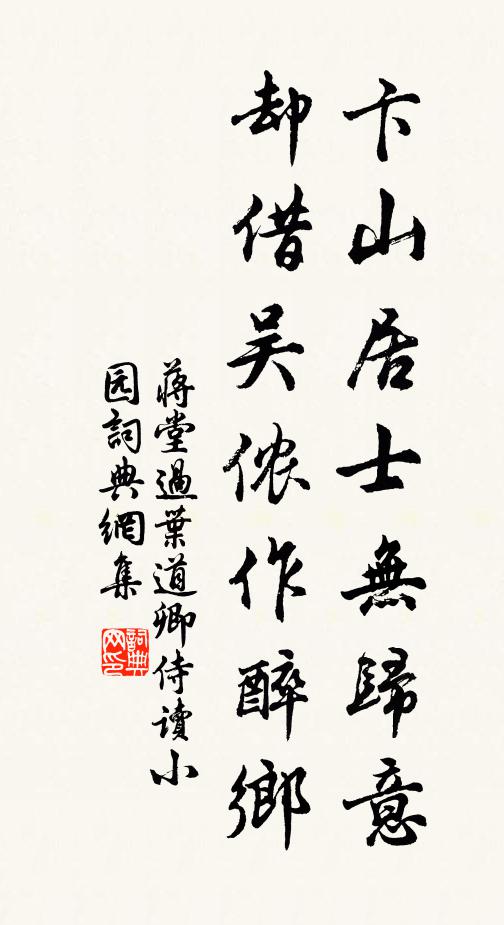 卞山居士無歸意
却借吴侬作醉鄉
蔣堂過葉道卿侍讀小
园詞典網集
詞典网印